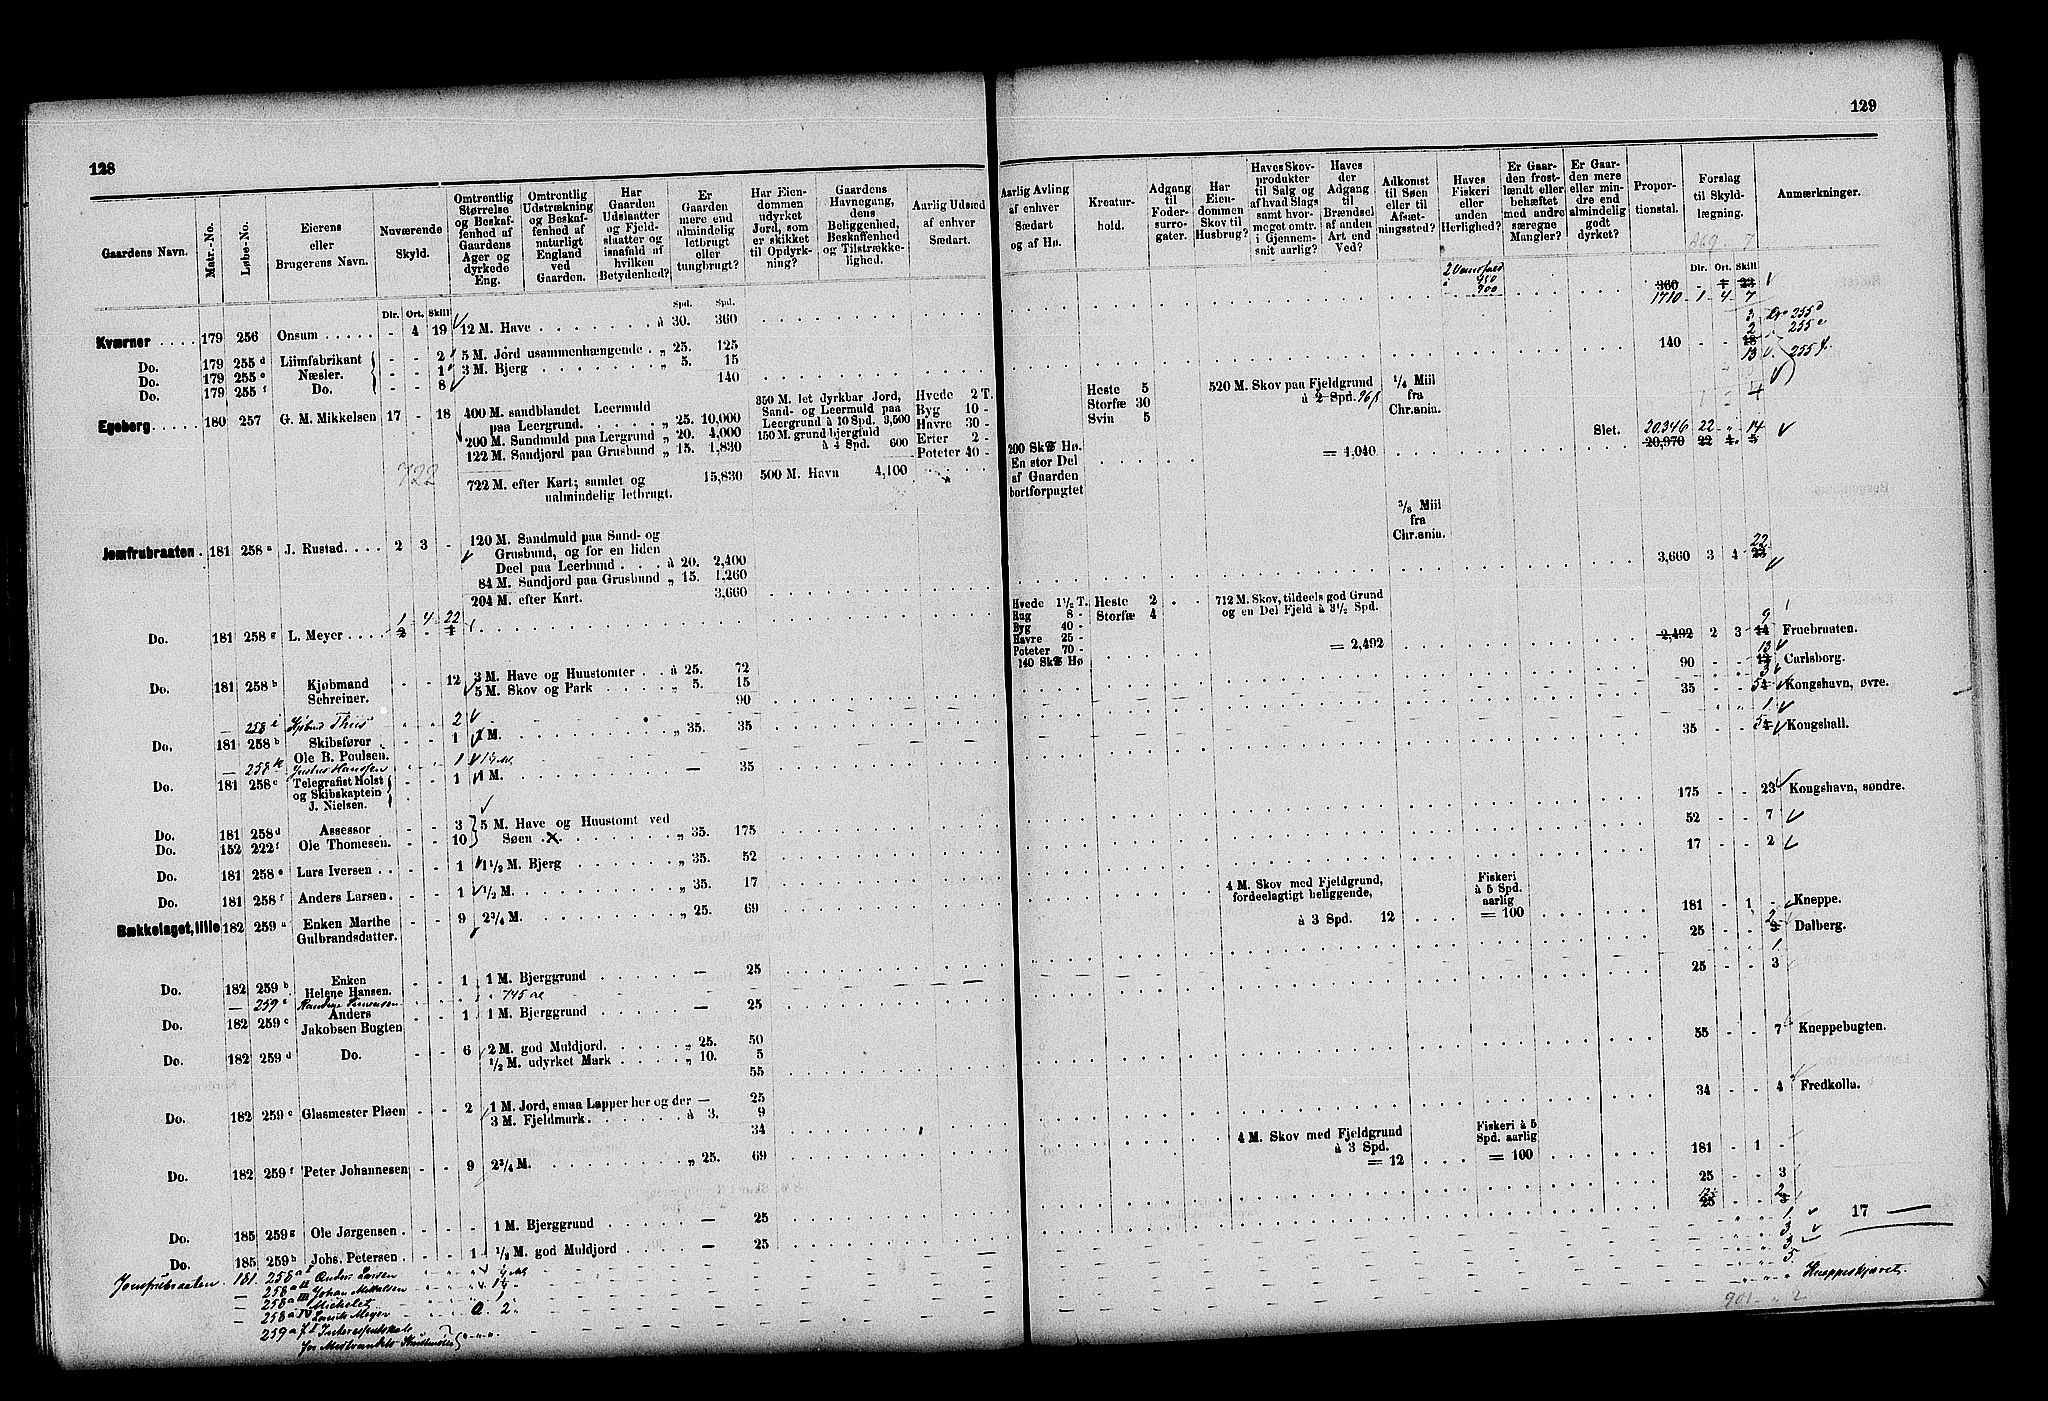 128
Gaardens Navn. Matr.-No. Løbe-No. Eierens eller Brugerens Navn. Nuværende Skyld. Omtrentlig Størrelse og Beskaffenhed af Gaardens Ager og dyrkede Eng. Omtrentlig Udstrækning og Beskaffenhed af naturligt England ved Gaarden. Har Gaarden Udslaatter og Fjeldslaatter og isaafald af hvilken Betydenhed? Er Gaarden mere end almindelig letbrugt eller tungbrugt? Har Eiendommen udyrket Jord, som er skikket til Opdyrkning? Gaardens Havnegang, dens Beliggenhed, Beskaffenhed og Tilstrækkelighed. Aarlig Udsæd af enhver Sædart.
Dlr. Ort. Skill. Spd. Spd.
Kværner 179 256 Onsum - 4 19 12 M. Have à 30. 360
Do. 179 255 d Liimfabrikant - - 2 5 M. Jord usammenhængende „ 25. 125
Do. 179 255 e Næsler. - - 1 3 M. Bjerg „ 5. 15
Do. 179 255 f Do. - - 8 140
Egeberg 180 257 G. M. Mikkelsen 17 - 18 400 M. sandblandet Leermuld paa Leergrund. „ 25. 10,000
200 M. Sandmuld paa Lergrund „ 20. 4,000
122 M. Sandjord paa Grusbund „ 15. 1,830
722 722 M. efter Kart; samlet og ualmindelig letbrugt. 15,830
350 M. let dyrkbar Jord, Sand- og Leermuld paa Leergrund à 10 Spd. 3,500
150 M. grund bjergfuld à 4 Spd. 600
500 M. Havn 4,100
Hvede 2 T.
Byg 10 -
Havre 30 -
Erter 2 -
Poteter 40 -
Jomfrubraaten 181 258 a J. Rustad. 2 3 - 120 M. Sandmuld paa Sand- og Grusbund, og for en liden Deel paa Leerbund à 20. 2,400
84 M. Sandjord paa Grusbund „ 15. 1,260
204 M. efter Kart. 3,660
1 4 22
Do. 181 258 g L. Meyer 2 - 1
Do. 181 258 b Kjøbmand Schreiner. - - 12 3 M. Have og Huustomter à 25. 72
5 M. Skov og Park „ 5. 15
90
— 258 i Kjøbmd Thiis 2
Do. 181 258 b Skibsfører Ole B. Poulsen. - - 1 1 M. „ 35. 35
— 258 k Justus Hansen 1 1¼ M.
Do. 181 258 c Telegrafist Holst og Skibskaptein J. Nielsen. - - 1 1 M. — 35
Do. 181 258 d Assessor - - 3 5 M. Have og Huustomt ved
Do. 152 222 f Ole Thomesen. - - 10 Søen „ 35. 175
Do. 181 258 e Lars Iversen - - 1 1½ M. Bjerg „ 35. 52
Do. 181 258 f Anders Larsen. - - 1 ½ M. „ 35. 17
Bækkelaget, lille 182 259 a Enken Marthe Gulbrandsdatter. - - 9 2¾ M. „ 25. 69
Do. 182 259 b Enken Helene Hansen. - - 1 1 M. Bjerggrund — 25
— 259 745 al
Do. 182 259 c Anders Jakobsen Bugten - - 1 1 M. Bjerggrund — 25
Do. 182 259 d Do. - - 6 2 M. god Muldjord. „ 25. 50
½ M. udyrket Mark „ 10. 5
55
Do. 182 259 e Glasmester Pløen - - 2 1 M. Jord, smaa Lapper her og der — 25
3 M. Fjeldmark. à 3. 9
34
Do. 182 259 f Peter Johannesen - - 9 2¾ M. „ 25. 69
Do. 185 259 g Ole Jørgensen - - - 1 M. Bjerggrund — 25
Do. 185 259 h Johs. Petersen - - 1 ½ M. god Muldjord — 25
Jomfrubraaten 181 258 a I Anders Larsen
— 258 a II Johan Mikkelsen
— 258 a III Michelet
— 258 a IV Lorentz Meyer
259 a f I Interessentskab
129
Aarlig Avling af enhver Sædart og af Hø. Kreaturhold. Adgang til Fodersurrogater. Har Eiendommen Skov til Husbrug? Haves Skovprodukter til Salg og af hvad Slags samt hvormeget omtr. i Gjennemsnit aarlig? Haves der Adgang til Brændsel af anden Art end Ved? Adkomst til Søen eller til Afsætningssted? Haves Fiskeri eller anden Herlighed? Er Gaarden frostlændt eller behæftet med andre særegne Mangler? Er Gaarden mere eller mindre end almindelig godt dyrket? Proportionstal. Forslag til Skyldlægning. Anmærkninger.
869 7
Dlr. Ort. Skill
2 Vandfald 450 900
360 1 23
1710 1 4 7
3 Lno 255 d
2 „ 255 e
140 - - 18
13 255 f
Heste 5
Storfæ 30
Svin 5
520 M. Skov paa Fjeldgrund
à 2 Spd. 96 β
= 1,040
¼ Miil fra Chr.ania.
200 Sk℔ Hø. En stor Del af Gaarden bortforpagtet
Slet. 20,346 22 „ 14
20,970 22 4 5
⅜ Miil fra Chr.ania.
22
3,660 3 4 23
Hvede 1½ T.
Rug 8 -
Byg 40 -
Havre 25 -
Poteter 70 -
140 Sk℔ Hø
Heste 2
Storfæ 4
712 M. Skov, tildeels god Grund og en Del Fjeld à 3½ Spd.
= 2,492
9
2,492 2 3 14 Fruebraaten.
13
90 - - 12 Carlsborg.
3
35 - - 5 Kongshavn, øvre.
1
35 5 Kongshall.
175 - - 23 Kongshavn, søndre.
52 - - 7
17 - - 2
4 M. Skov med Fjeldgrund, fordeelagtigt beliggende, à 3 Spd. 12
Fiskeri à 5 Spd. aarlig = 100
181 - 1 - Kneppe.
2
25 - - 3 Dalberg.
1
25 - - 3
55 - - 7 Kneppebugten.
34 - - 4 Fredkolla.
4 M. Skov med Fjeldgrund à 3 Spd. = 12
Fiskeri à 5 Spd. aarlig = 100
181 - 1 -
25 - - 3
25 - - 2
1 17 —
3
3
5 Kneppeskjæret.
901 - „ 2